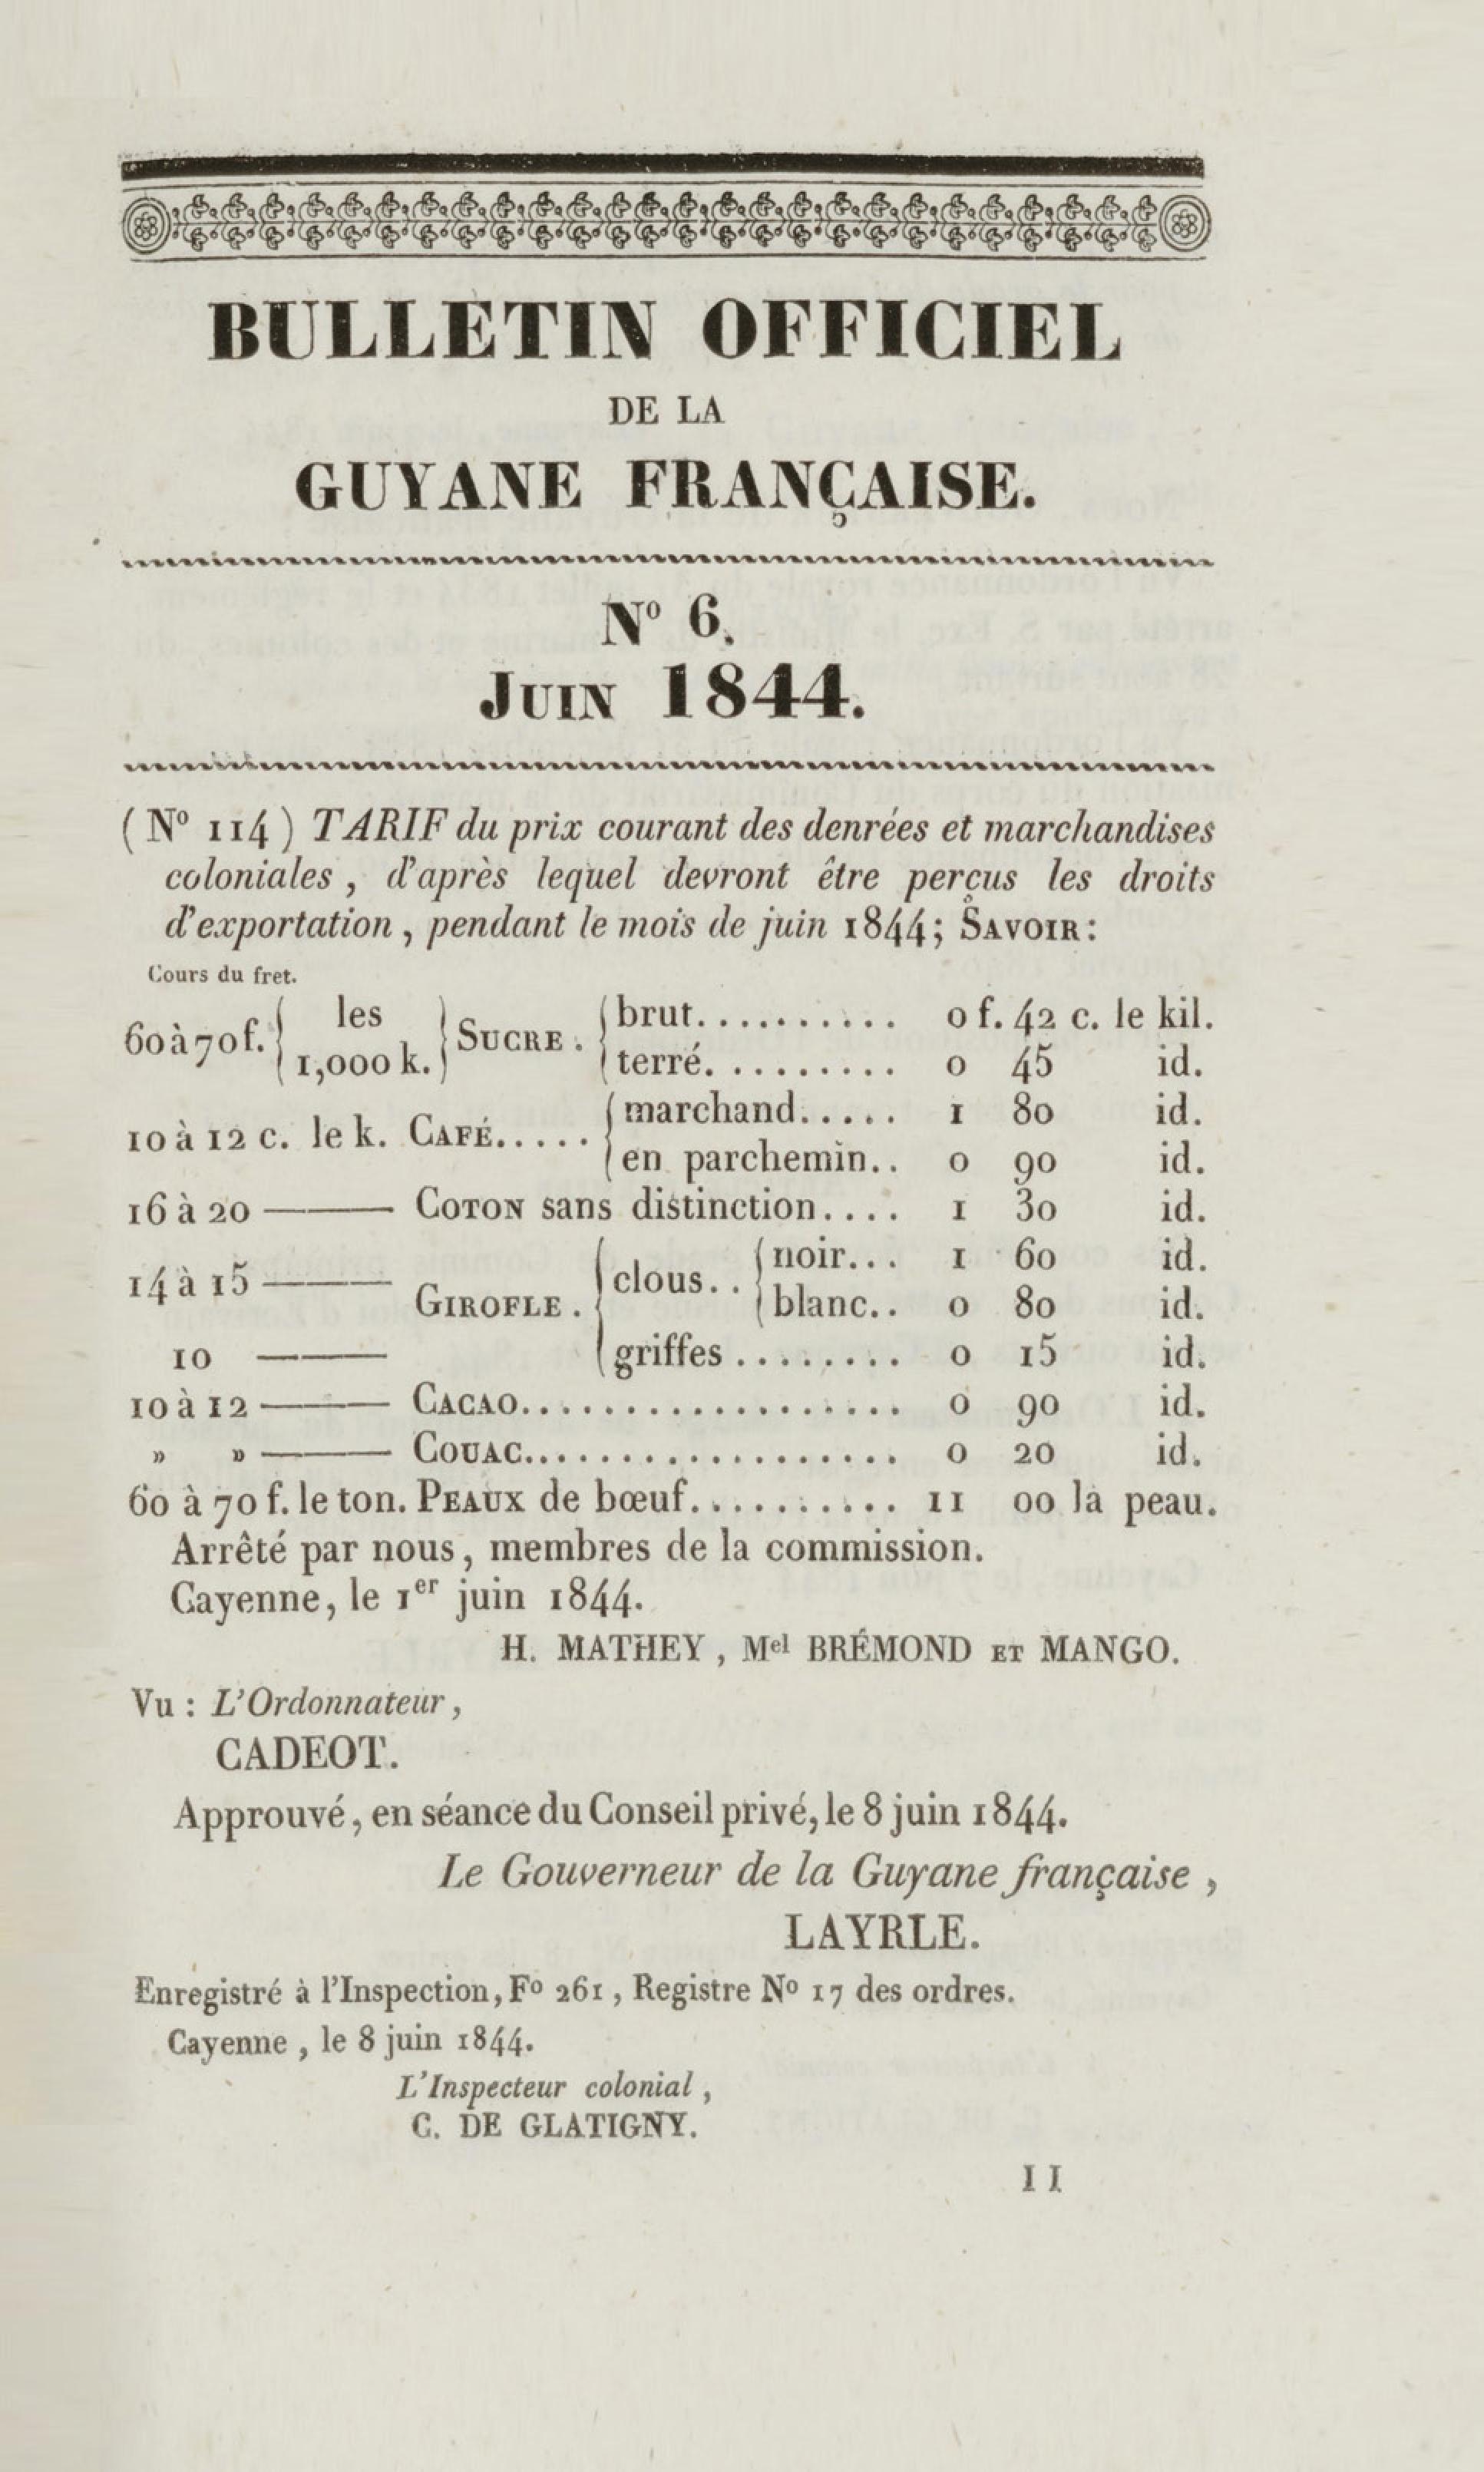 BULLETIN OFFICIEL
DE LA
GUYANE FRANÇAISE.
Nº 6.
JUIN 1844.
( Nº 114 ) TARIF du prix courant des denrées et marchandises
coloniales , d'après lequel devront être perçus les droits
d'exportation , pendant le mois de juin 1844; SAVOIR:
Cours du fret.
60 à 70 f. { les 1,000 k. } SUCRE . { brut.......... 0 f. 42 c. le kil.
terré. ......... 0 45 id.
10 à 12 c. le k. CAFÉ..... { marchand..... 1 80 id.
en parchemin.. 0 90 id.
16 à 20 ——— COTON sans distinction.... 1 30 id.
14 à 15 ——— GIROFLE . { clous.. { noir... 1 60 id.
blanc.. 0 80 id.
10 ——— griffes ........ 0 15 id.
10 à 12 ——— CACAO.................. 0 90 id.
» » ——— COUAC.................. 0 20 id.
60 à 70 f. le ton. PEAUX de bœuf.......... 11 00 la peau.
Arrêté par nous, membres de la commission.
Cayenne, le 1er juin 1844.
H. MATHEY , Mel BRÉMOND ET MANGO.
Vu : L'Ordonnateur ,
CADEOT.
Approuvé, en séance du Conseil privé, le 8 juin 1844.
Le Gouverneur de la Guyane française ,
LAYRLE.
Enregistré à l'Inspection, Fº 261 , Registre Nº 17 des ordres.
Cayenne , le 8 juin 1844.
L'Inspecteur colonial ,
C. DE GLATIGNY.
11